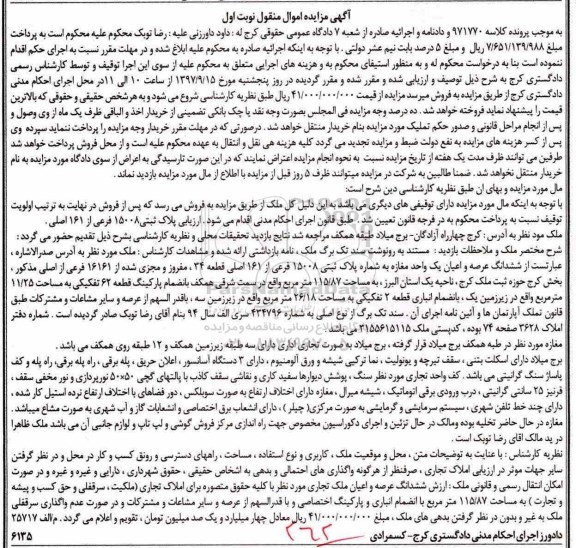 آگهی مزایده اموال منقول نوبت اول
به موجب پرونده کلاسه ۹۷۱۷۷۰ و دادنامه و اجرائیه صادره از شعبه ۷ دادگاه عمومی حقوقی کرج له : داود داورزنی علیه : رضا توبک محکوم علیه محکوم است به پرداخت
مبلغ ۷/۶۵۱/۱۳۹/۹۸۸ ریال و مبلغ ۵ درصد بابت نیم عشر دولتی . با توجه به اینکه اجرائیه صادره به محکوم علیه ابلاغ شده و در مهلت مقرر نسبت به اجرای حکم اقدام
ننموده است بنا به درخواست محکوم له و به منظور استیفای محکوم به و هزینه های اجرایی متعلق به محکوم علیه از سوی این اجرا توقیف و توسط کارشناس رسمی
دادگستری کرج به شرح ذیل توصیف و ارزیابی شده و مقرر شده و مقرر گردیده در روز پنجشنبه مورخ ۱۳۹۷/۹/۱۵ از ساعت ۱۰ الی ۱۱ در محل اجرای احکام مدنی
دادگستری کرج از طریق مزایده به فروش میرسد مزایده از قیمت ۴۱/۰۰۰/۰۰۰/۰۰۰ ریال طبق نظریه کارشناسی شروع می شود و به هرشخص حقیقی و حقوقی که بالاترین
قیمت را پیشنهاد نماید فروخته خواهد شد . ده درصد وجه مزایده فی المجلس بصورت وجه نقد یا چک بانکی تضمینی از خریدار اخذ و الباقی ظرف یک ماه از وی وصول و
پس از انجام مراحل قانونی و صدور حکم تملیک مورد مزایده بنام خریدار منتقل خواهد شد . درصورتی که در مهلت مقرر خریدار وجه مزایده را پرداخت ننماید سپرده وی
پس از کسر هزینه های مزایده به نفع دولت ضبط و مزایده تجدید می گردد کلیه هزینه هی نقل و انتقال به عهده محکوم علیه است و از محل فروش پرداخت خواهد شد
طرفین می توانند ظرف مدت یک هفته از تاریخ مزایده نسبت به نحوه انجام مزایده اعتراض نمایند که در این صورت تارسیدگی به اعراض از سوی دادگاه مورد مزایده به نام
خریدار منتقل نخواهد شد . ضمنا طالبین به شرکت در مزایده میتوانند ظرف ۵ روز قبل از مزایده با اطلاع از مال مورد مزایده بازدید نماند .
مال مورد مزایده و بهای ان طبق نظریه کارشناسی دین شرح است:
با توجه به اینکه مال مورد مزایده دارای توقیفی های دیگری می باشد به این دلیل کل ملک از طریق مزایده به فروش می رسد که پس از فروش در نهایت به ترتیب اولویت
توقیف نسبت به پرداخت محکوم به در فرجه قانون تعیین شد . طبق قانون اجرای احکام مدنی اقدام می شود . ارزیابی پلاک ثبتی ۱۵۰۰۸ فرعی از ۱۶۱ اصلی.
ملک مود نظر به آدرس : کرج چهارراه آزادگان- برج میلاد طبقه همکف مراجعه شد نتایج بازدید تحقیقات محلی و نظریه کارشناسی بشرح ذیل تقدیم حضور می گردد :
شرح مختصر ملک و ملاحظات بازدید : مستند به رونوشت سند تک برگ ملک ، نامه بازداشتی ارائه شده و مشاهدات کارشناس : ملک مورد نظر به آدرس صدرالاشاره ،
عبارتست از ششدانگ عرصه و اعیان یک واحد مغازه به شماره پلاک ثبتی ۱۵۰۰۸ فرعی از ۱۶۱ اصلی قطعه ۲۴ ، مفروز و مجزی شده از ۱۶۱۶۱ فرعی از اصلی مذکور ،
بخش کرج حوزه ثبت ملک کرج، ناحیه یک استان البرز ، به مساحت ۱۱۵/۸۷ متر مربع واقع در سمت شرقی همکف بانضمام پارکینگ قطعه ۶۲ تفکیکی به مساحت ۱۱/۲۵
مترمربع واقع در زیرزمین یک ، بانضمام انباری قطعه ۲ تفکیکی به مساحت ۲۶/۱۸ متر مربع واقع در زیرزمین سه ، باقدر السهم از عرصه و سایر مشاعات و مشترکات طبق
قانون تملک آپارتمان ها و آئین نامه اجرای آن . سند تک برگ از نوع اصلی به شماره ۴۳۴۷۹۶ سری الف سال ۹۴ بنام آقای رضا توبک صادر گردیده است . شماره دفتر
املاک ۳۶۲۸ صفحه ۷۴ بوده ، کدپستی ملک ۳۱۵۵۶۱۵۱۱۵ می باشد.
مغازه مورد نظر در طبه همکف برج میلاد قرار گرفته ، برج میلاد بصورت تجاری اداری دارای سه طبقه زیرزمین همکف و ۱۲ طبقه روی همکف می باشد.
برج میلاد دارای اسکلت بتنی ، سقف تیرچه و یونولیت ، نما ترکیبی شیشه و ورق آلومنیوم ، دارای ۳ دستگاه آسانسور ، اعلان حریق ، پله برقی ، راه پله برقی، راه پله و کف
پاساژ سنگ گرانیتی می باشد . کف واحد تجاری مورد نظر سنگ ، پوشش دیوارها سفید کاری و نقاشی سقف کاذب با پالتهای گچی ۵۰×۵۰ نورپردازی و نور مخفی سقف ،
قرنیز ۲۵ سانتی گرانیتی ، درب ورودی برقی اتوماتیک ، شیشه میرال ، مغازه دارای اختلاف ارتفاع به صورت سوبلکس ، دور فضاهای با اختلاف ارتفاع نرده استیل کار شده ،
دارای چند خط تلفن شهری ، سیستم سرمایشی و گرمایشی به صورت مرکزی( چیلر ) ، دارای انشعاب برق اختصاصی و انشعابات گاز و آب شهری به صورت مشاع میباشد .
مغازه در حال حاضر تخلیه بوده ومالک در حال تزئین و اجرای دکوراسیون مخصوص جهت راه اندازی مرکز فروش گوشی و لپ تاپ و لوازم جانبی آن می باشد ملک ظاهرا
در ید مالک اقای رضا توبک است .
نظریه کارشناس : با عنایت به توضیحات متن ، محل و موقعیت ملک ، کاربری و نوع استفاده ، مساحت ، راههای دسترسی و رونق کسب و کار در محل و در نظر گرفتن
سایر جهات موثر در ارزیابی املاک تجاری ، صرفنظر از هرگونه واگذاری های احتمالی و بدهی به اشخاص حقیقی ، حقوق شهرداری ، دارایی و غیره و غیره و در صورت
امکان انتقال رسمی و قانونی ملک : ارزش ششدانگ عرصه و اعیان ملک تجاری مورد نظر با کلیه حقوق متصوره برای املاک تجاری (ملکیت ، سرقفلی و حق کسب و پیشه
و تجارت ) به مساحت ۱۱۵/۸۷ متر مربع با انضمام انباری و پارکینگ اختصاصی و با قدرالسهم از عرصه و سایر مشاعات و مشترکات و در صورت عدم واگذاری سرقفلی
ملک به غیر و بدون در نظر گرفتن بدهی های ملک ، مبلغ ۴۱/۰۰۰/۰۰۰/۰۰۰ ریال معادل چهار میلیارد و یک صد میلیون تومان ، تقویم و اعلام می گردد . م/الف ۲۵۷۱۷
دادورز اجرای احکام مدنی دادگستری کرج- کسمرادی
۶۱۳۵